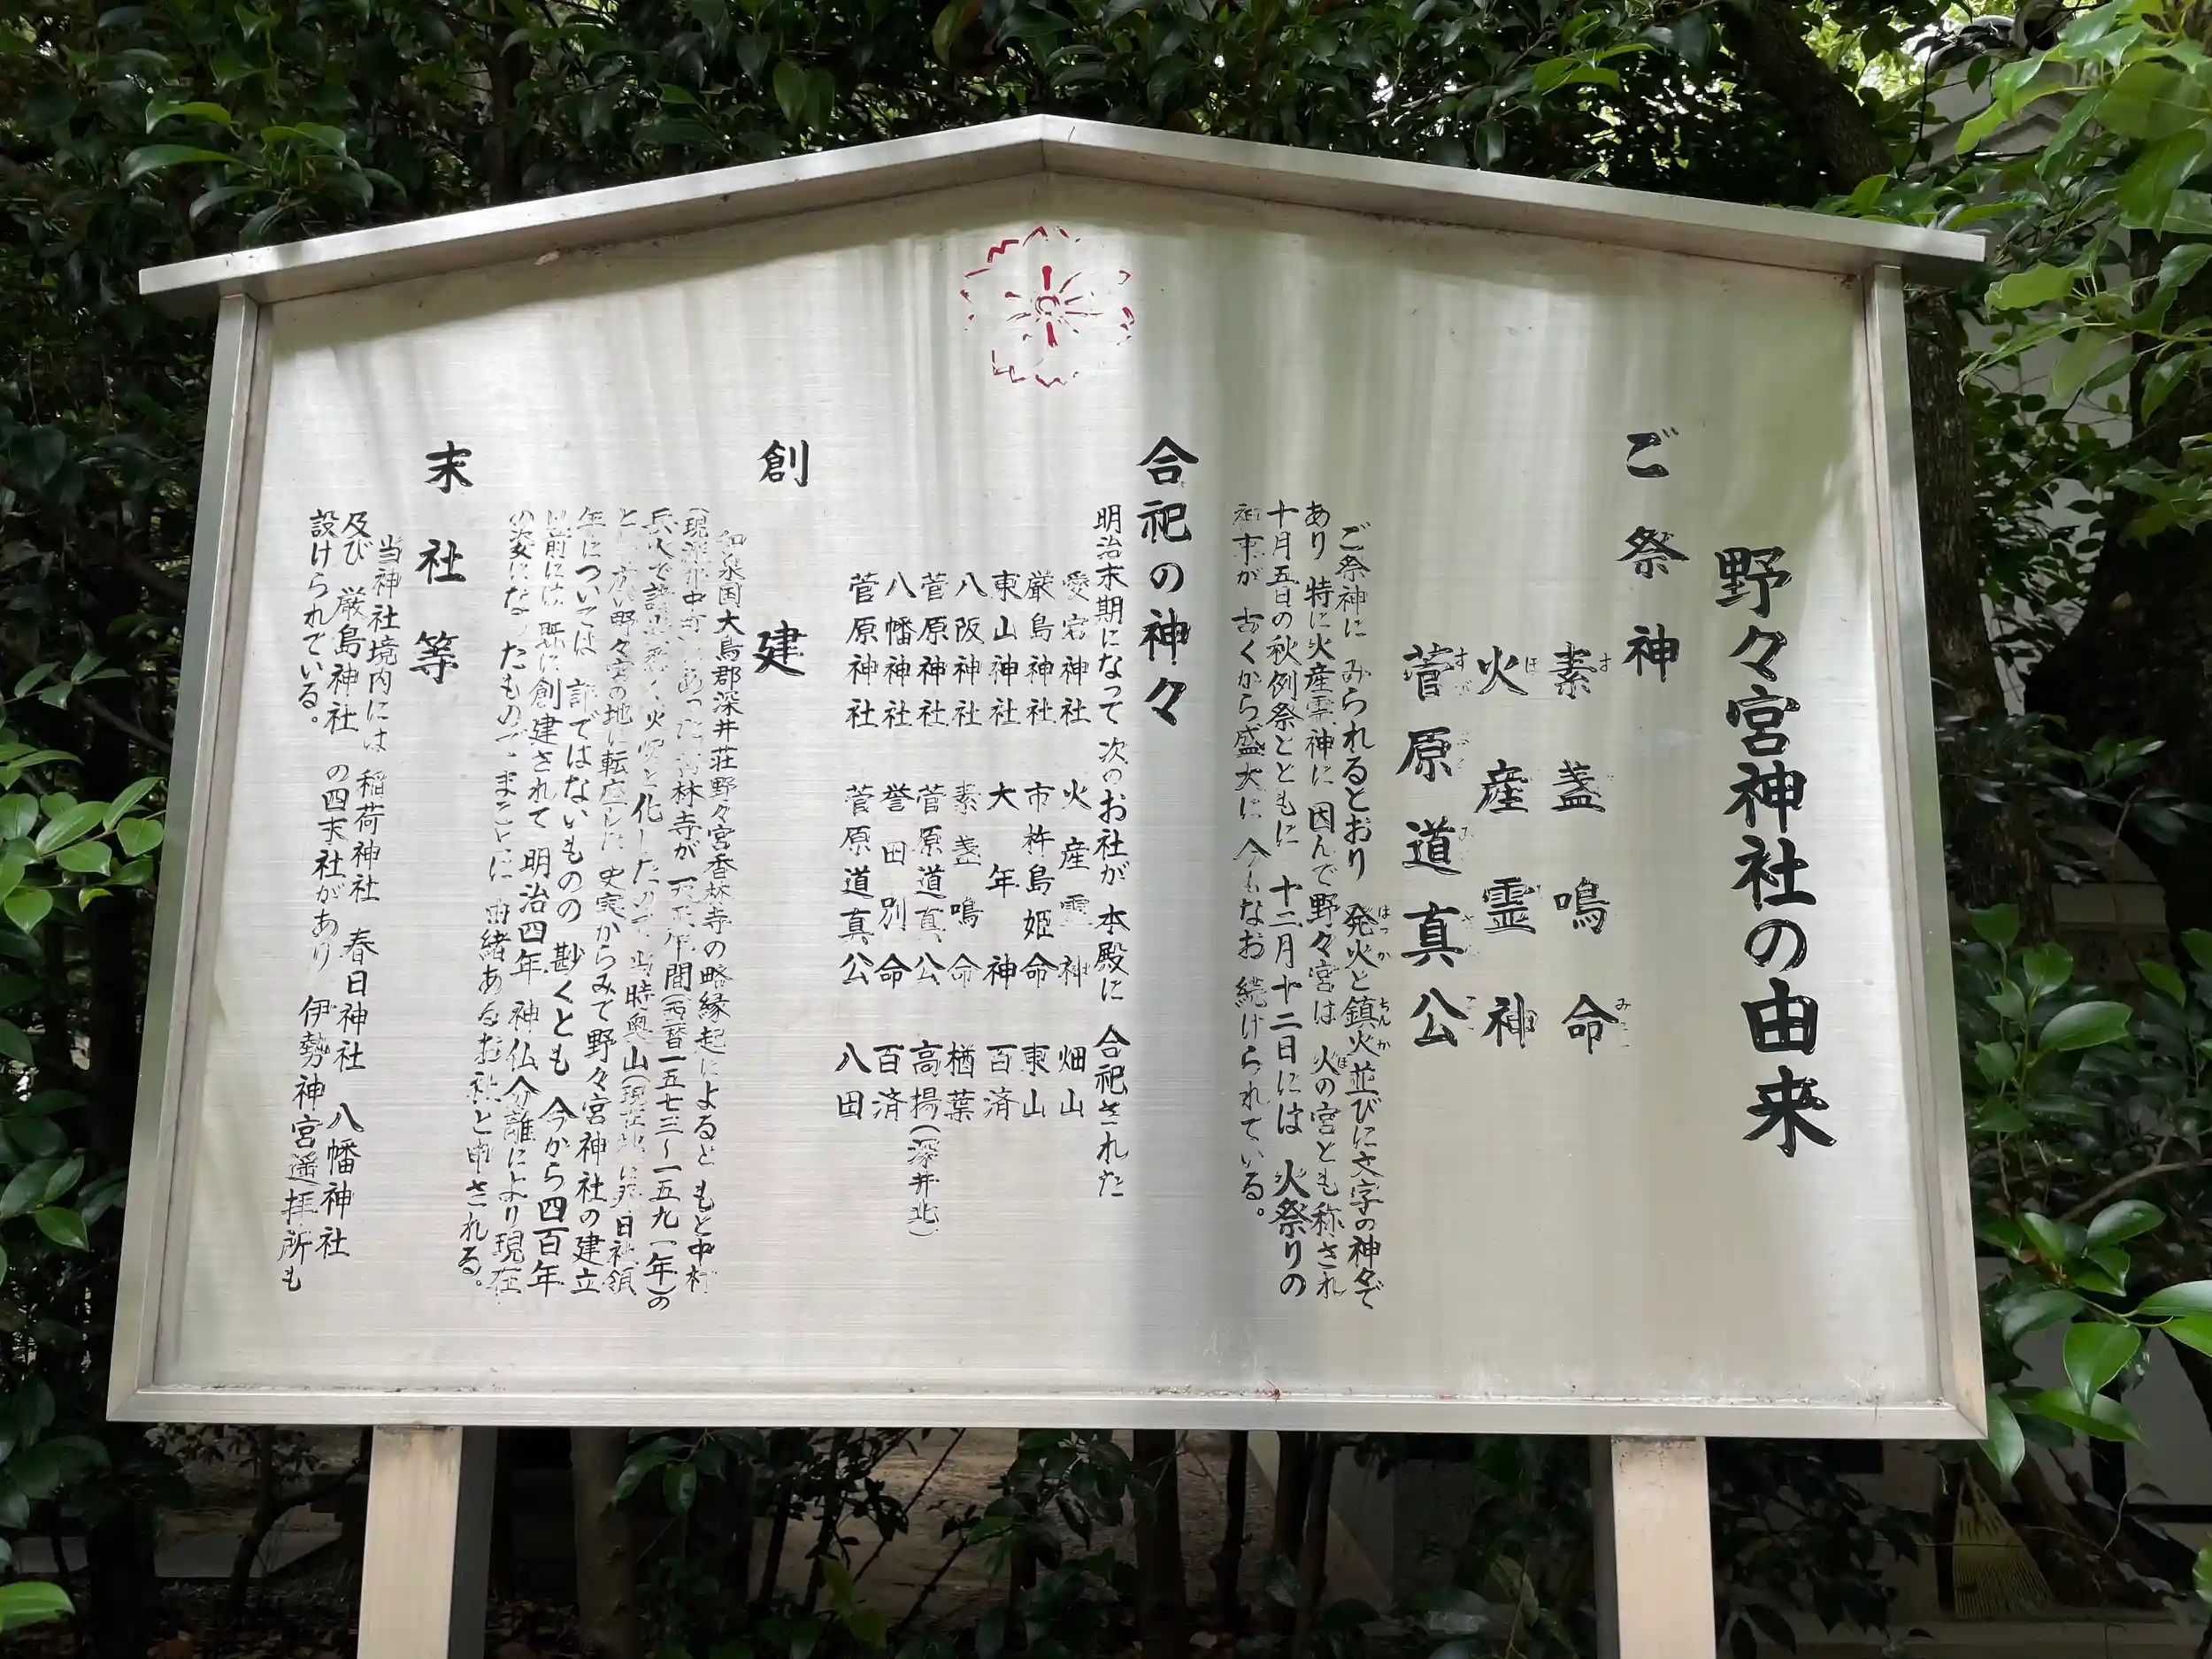 野々宮神社の由来
ご祭神
素盞鳴命
火産霊神
菅原道真公
ご祭神に みられるとおり 発火と鎮火並びに文字の神々で
あり 特に火産霊神に因んで野々宮は 火の宮とも称され
十月五日の秋例祭とともに 十二月十二日には 火祭りの
神事が 古くから盛大に 今もなお 続けられている。
合祀の神々
明治末期になって 次のお社が 本殿に 合祀された
愛宕神社 火産霊神 畑山
厳島神社 市杵島姫命 東山
東山神社 大年神 百済
八阪神社 素盞鳴命 楢葉
菅原神社 菅原道真公 高揚(深井北)
八幡神社 誉田別命 百済
菅原神社 菅原道真公 八田
創建
和泉国大鳥郡深井荘野々宮香林寺の略縁起によると もと中村
(現深井中町)にあった香林寺が 天正年間(西暦一五七三〜一五九一年)の
兵火で 火 と化したので 当時奥山(現在地)に 春日社領
として 広い野々宮の地に転 した 史実からみて野々宮神社の建立
年については 詳ではないものの 尠くとも 今から四百年
以前には 既に創建されて 明治四年 神仏分離により現在
の姿になったもので まことに 由緒あるお社と申される。
末社等
当神社境内には 稲荷神社 春日神社 八幡神社
及び 厳島神社 の四末社があり 伊勢神宮遥拝所も
設けられている。